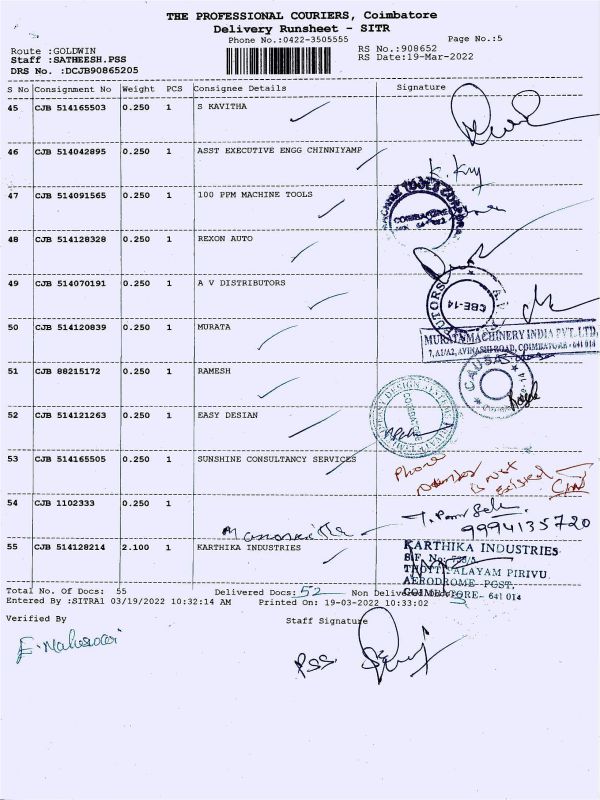 THE PROFESSIONAL COURIERS, Coimbatore
Delivery Runsheet - SITR
Phone No.:0422-3505555
Page No.:5
Route :GOLDWIN
RS No.:908652
Staff :SATHEESH.PSS
RS Date:19-Mar-2022
DRS No. :DCJB90865205
S No Consignment No Weight PCS Consignee Details Signature
45 CJB 514165503 0.250 1 S KAVITHA
46 CJB 514042895 0.250 1 ASST EXECUTIVE ENGG CHINNIYAMP
47 CJB 514091565 0.250 1 100 PPM MACHINE TOOLS
COIMBATORE
48 CJB 514128328 0.250 1 REXON AUTO
49 CJB 514070191 0.250 1 A V DISTRIBUTORS
CBE-14
50 CJB 514120839 0.250 1 MURATA
MURATA MACHINERY INDIA PVT. LTD,
7, A1/A2, AVINASHI ROAD, COIMBATORE - 641 014
51 CJB 88215172 0.250 1 RAMESH
52 CJB 514121263 0.250 1 EASY DESIAN
DESIGN SYSTEM
53 CJB 514165505 0.250 1 SUNSHINE CONSULTANCY SERVICES
Phone
number
is not
existed
54 CJB 1102333 0.250 1
9994135720
55 CJB 514128214 2.100 1 KARTHIKA INDUSTRIES
KARTHIKA INDUSTRIES
THOTTIPALAYAM PIRIVU
AERODROME POST,
COIMBATORE- 641 014
Total No. Of Docs: 55 Delivered Docs: 52 Non Delivered Docs: 3
Entered By :SITRA1 03/19/2022 10:32:14 AM Printed On: 19-03-2022 10:33:02
Verified By
Staff Signature
E. Maheswari
PSS.